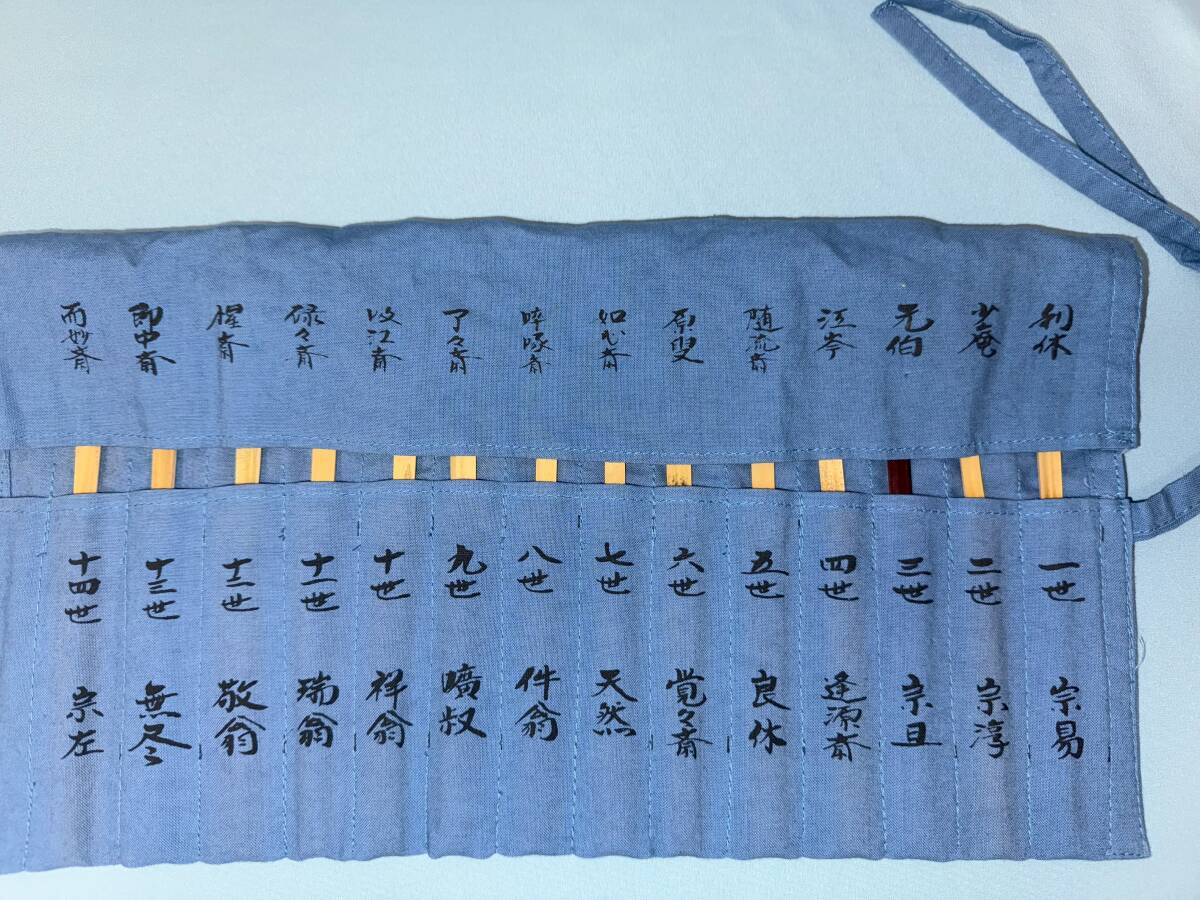 利休
少庵
元伯
江岑
随流斎
原叟
如心斎
啐啄斎
了々斎
吸江斎
碌々斎
惺斎
即中斎
而妙斎
一世 宗易
二世 宗淳
三世 宗旦
四世 逢源斎
五世 良休
六世 覚々斎
七世 天然
八世 件翁
九世 曠叔
十世 祥翁
十一世 瑞翁
十二世 敬翁
十三世 無尽
十四世 宗左